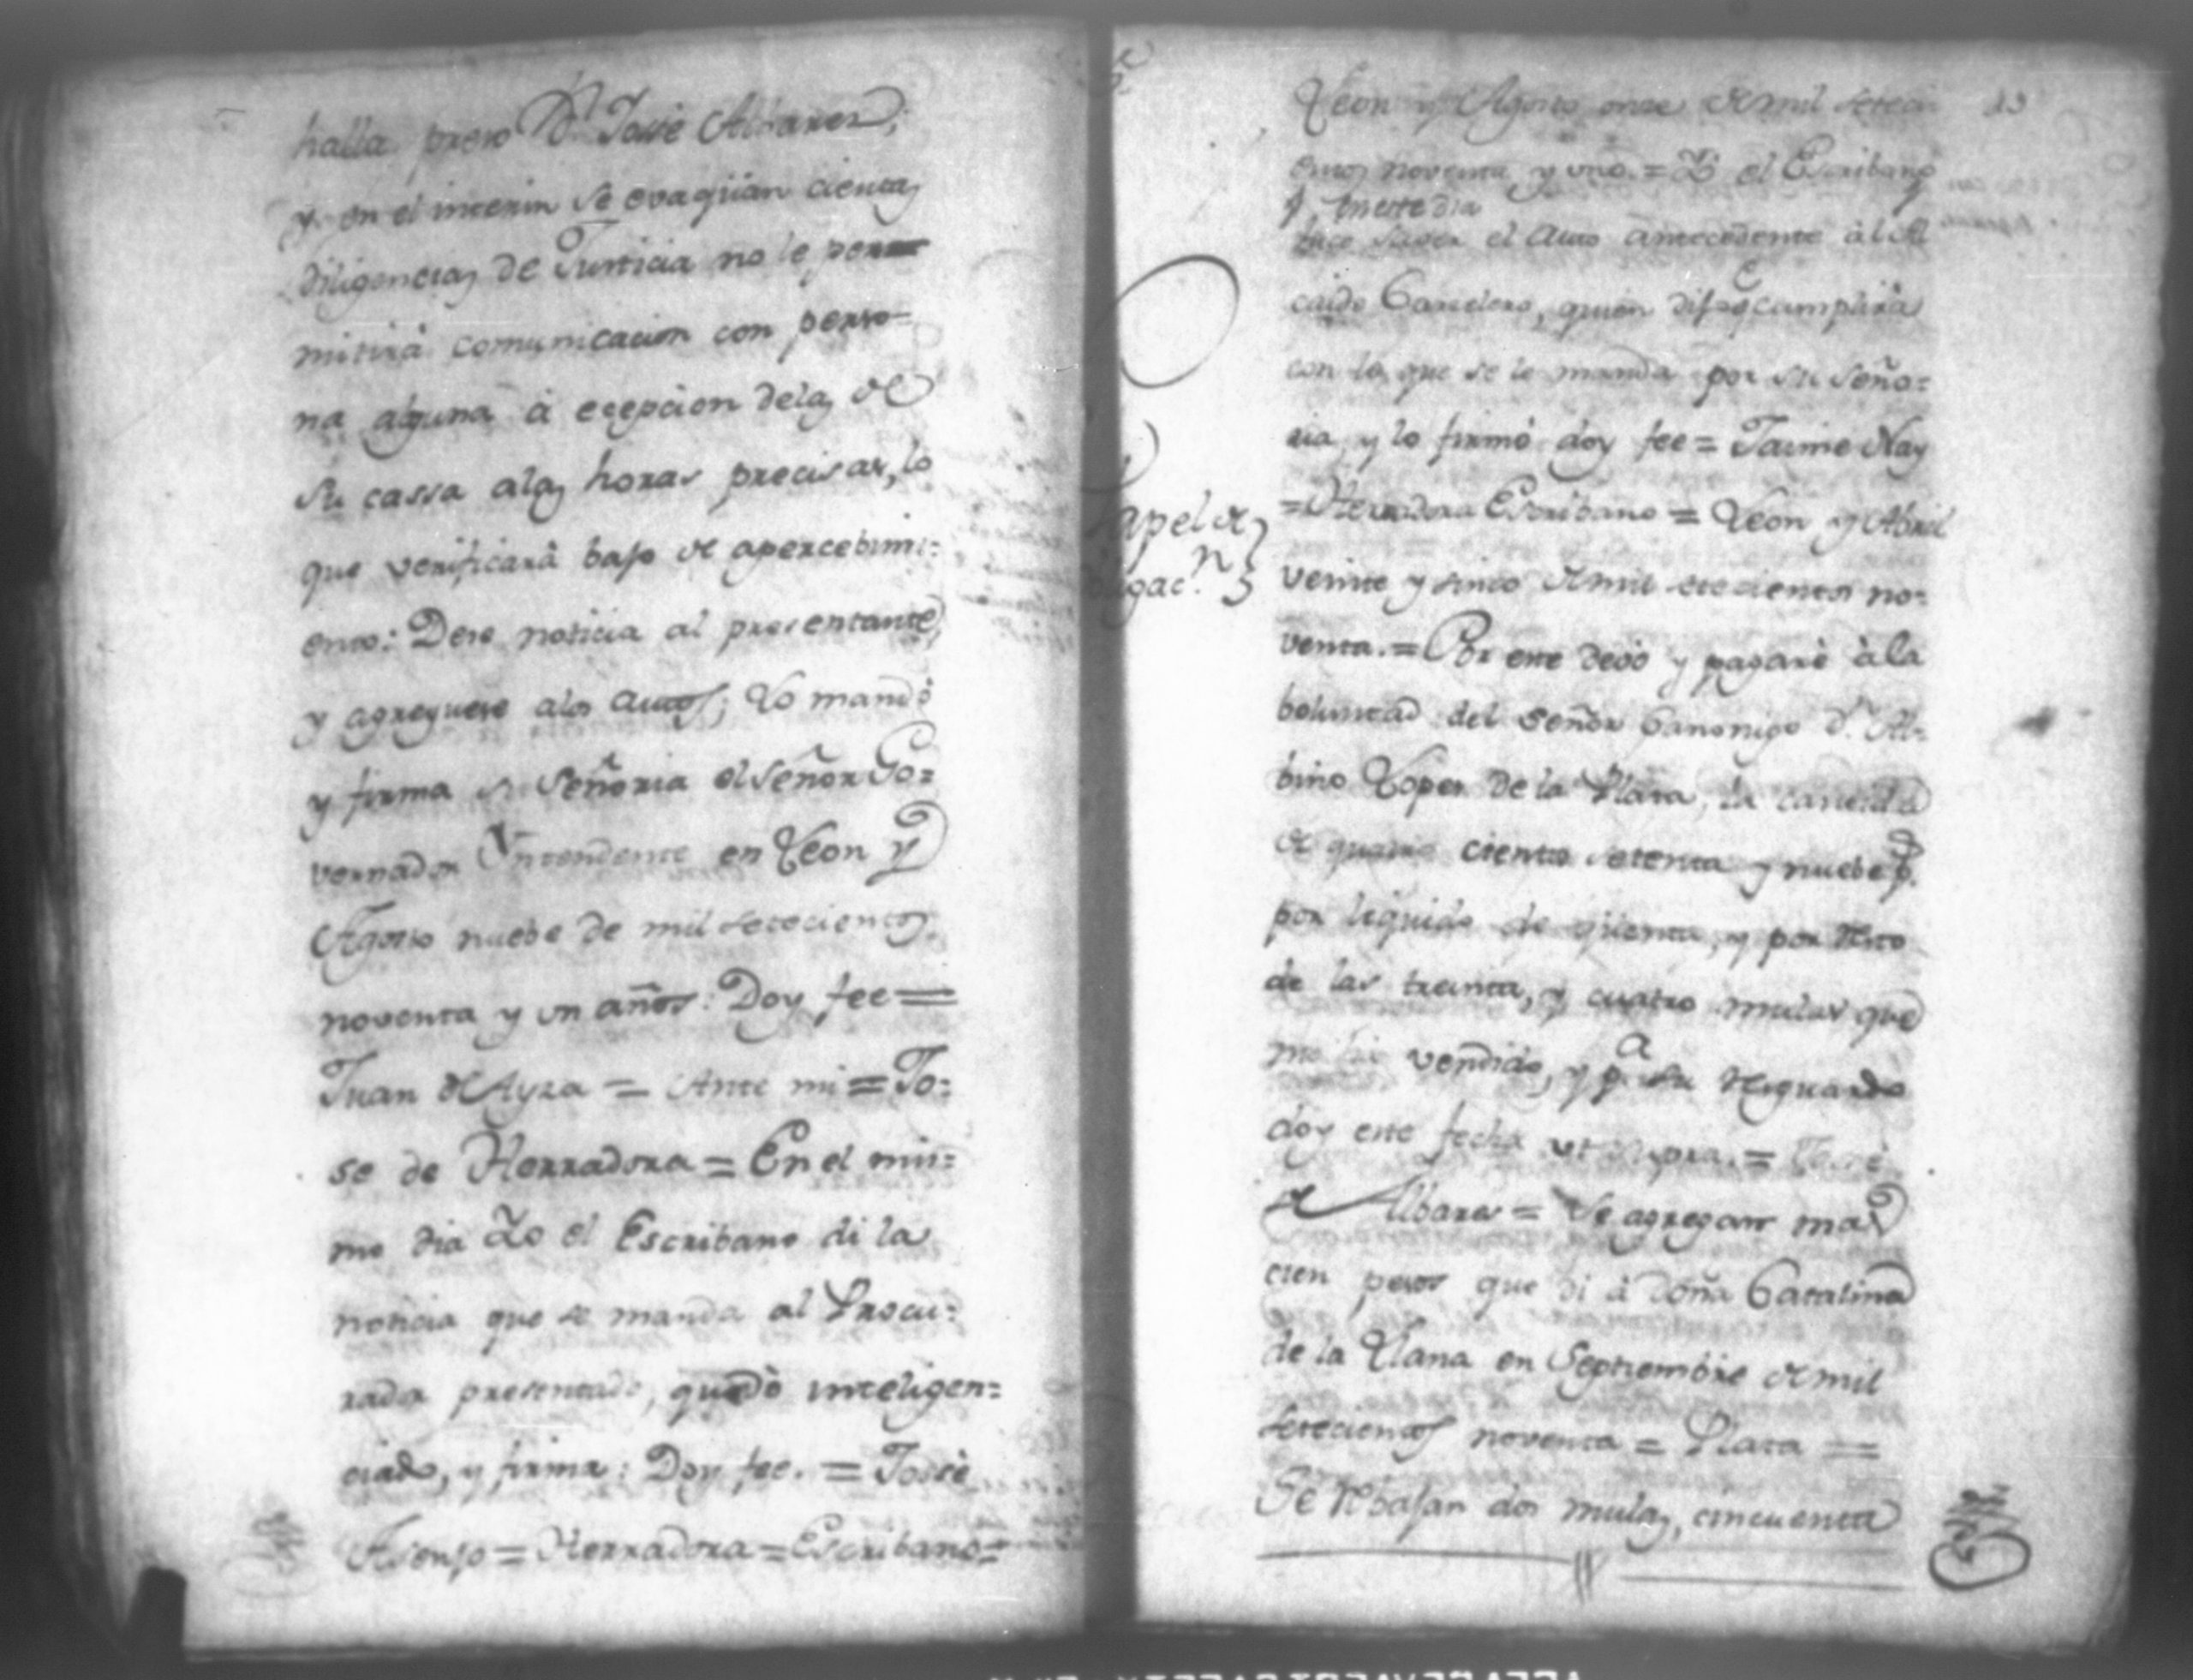 halla preso Dn Jose Albarez;
y en el interin se evaqüan ciertas
diligencias de Justicia no le per=
mitirà comunicacion con perso=
na alguna à ecepcion delas de
su cassa alas horas precisas, lo
que verificarà bajo de apercebimi=
ento: Dese noticia al presentante,
y agreguese alos autos; Lo mandò
y firma su Señoria el Señor Go=
vernador Yntendente en Leon y
Agosto nuebe de mil setecientos
noventa y un años: Doy fee =
Juan de Ayza = Ante mi = Jo=
se de Herradora = En el mis=
mo dia Yo el Escribano di la
noticia que se manda al Procu=
rador presentado, quedò inteligen=
ciado, y firma: Doy fee. = Josè
Asenjo = Herradora = Escribano =
Leon y Agosto onze de mil seteci
13
entos noventa y uno. = Yo el Escribano
, en este dia
hice saver el auto antecedente àl Al
caide Carcelero, quien dijo q cumplirà
con lo que se le manda por su Seño=
ria, y lo firmò doy fee = Jaime Nay
= Herradora Escribano = Leon y Abril
apel de
gacn
veinte y sinco de mil setecientos no=
venta. = Por este devo y pagarè à la
boluntad del señor Canonigo Dn Al=
bino Lopez de la Plata, la cantidad
de quatro cientos setenta y nuebe ps.
por liquido de qüenta, y por resto
de las treinta, y cuatro mulas que
me ha vendido, y pa su resguardo
doy este fecha ut supra. = José
de Albarez = Se agregan mas
cien pesos que di à doña Catalina
de la Llana en Septiembre de mil
setecientos noventa = Plata =
Se rebajan dos mulas, cincuenta